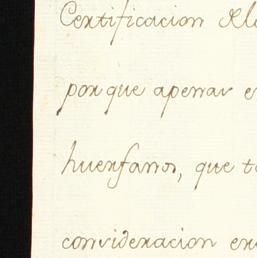 Certificacion del
por que apenar e
huerfanos, que t
consideracion en